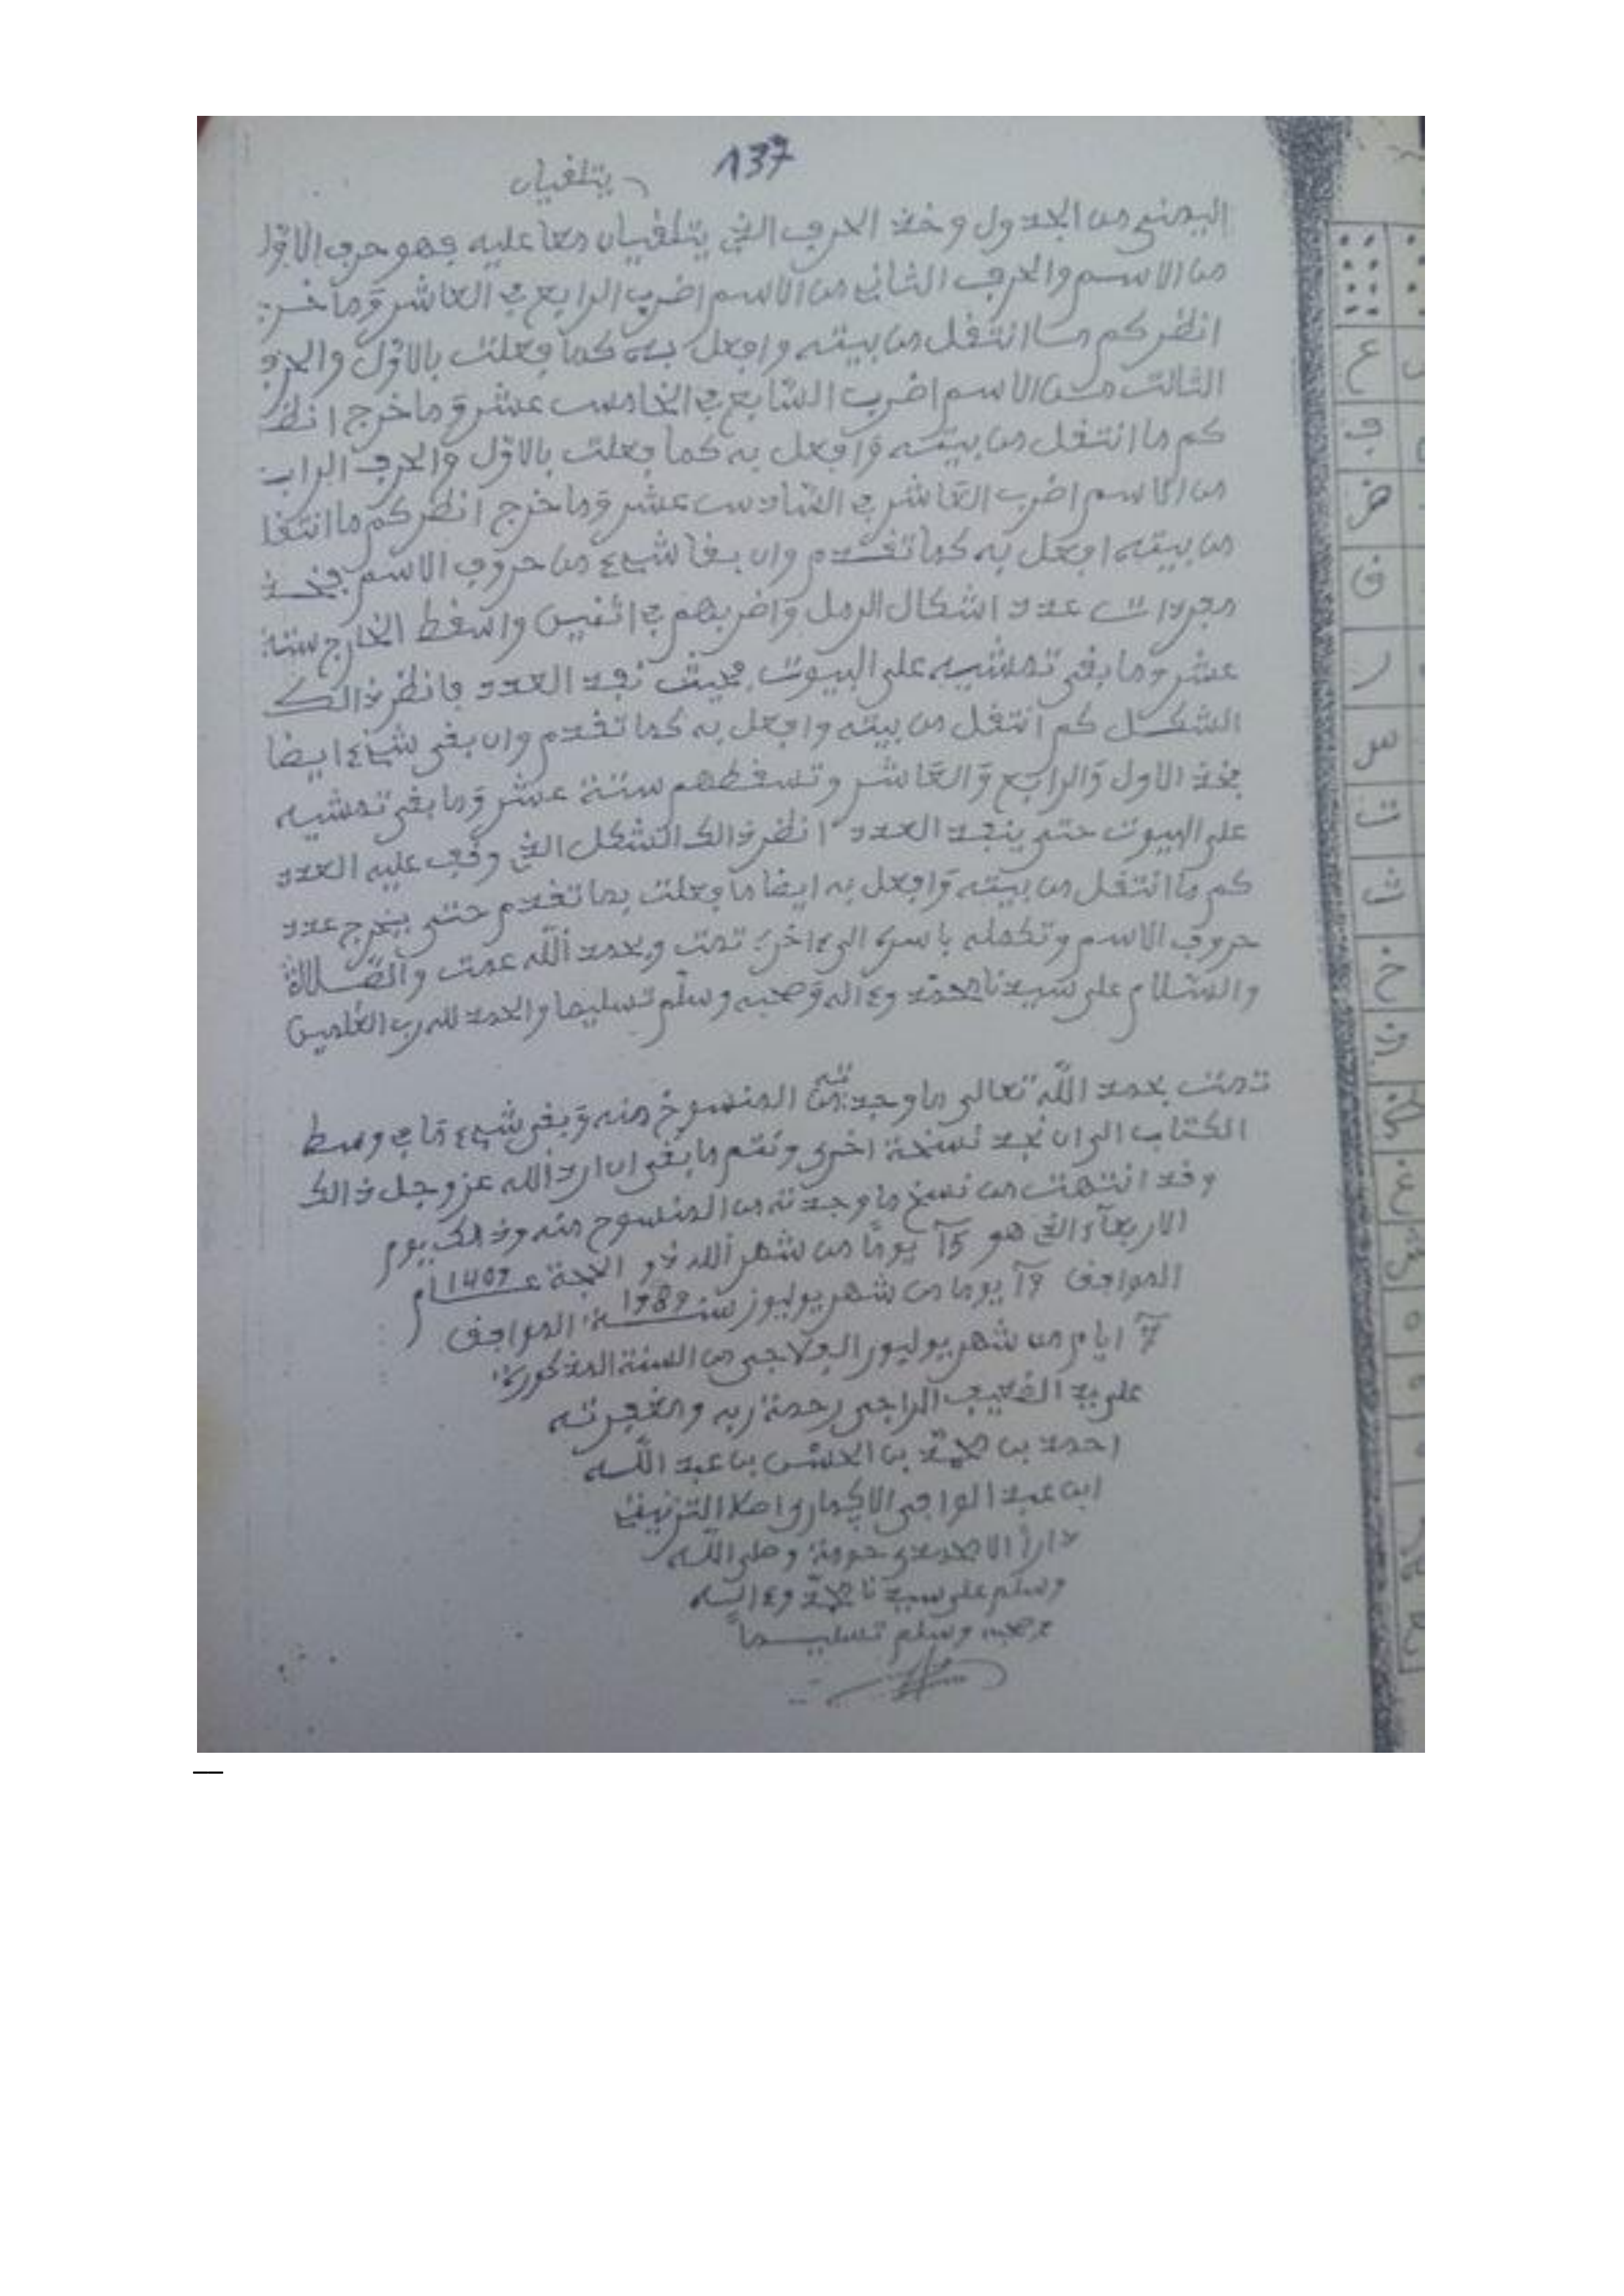 137
يتلفيان
اليمنى من الجدول وخذ الحرف الذي يتلفيان معا عليه فهو حرف الاول
من الاسم والحرف الثاني من الاسم اضرب الرابع في العاشر وما خرج
انظر كم ما انتقل من بيته وافعل به كما فعلت بالاول والحرف
الثالث من الاسم اضرب السابع في الخامس عشر وما خرج انظر
كم ما انتقل من بيته وافعل به كما فعلت بالاول والحرف الرابع
من الاسم اضرب العاشر في السادس عشر وما خرج انظر كم ما انتقل
من بيته افعل به كما تقدم وان بقا شيء من حروف الاسم فخذ
مجردات عدد اشكال الرمل واضربهم في اثنين واسقط الخارج ستة
عشر وما بقى تمشيه على البيوت فحيث نفد العدد فانظر ذالك
الشكل كم انتقل من بيته وافعل به كما تقدم وان بقى شيء ايضا
فخذ الاول والرابع والعاشر وتسقطهم ستة عشر وما بقى تمشيه
على البيوت حتى ينفد العدد انظر ذالك الشكل الذي وقف عليه العدد
كم ما انتقل من بيته وافعل به ايضا ما فعلت بما تقدم حتى يخرج عدد
حروف الاسم وتكمله باسره الى اخره تمت وبحمد الله عمت والصلاة
والسلام على سيدنا محمد وءاله وصحبه وسلم تسليما والحمد لله رب العلمين
تمت بحمد الله تعالى ما وجدته من المنسوخ منه وبقى شيء ما في وسط
الكتاب الى ان نجد نسخة اخرى ونتم ما بقى ان اراد الله عز وجل ذالك
وقد انتهت من نسخ ما وجدته من المنسوخ منه وذالك يوم
الاربعاء الذي هو 15 يوما من شهر الله ذو الحجة عام 1409
الموافق 19 يوما من شهر يوليوز سنة 1989 الموافق
7 ايام من شهر يوليوز الفلاحى من السنة المذكورة
على يد الضعيف الراجى رحمة ربه والمغفرته
احمد بن محمد بن الحسن بن عبد الله
ابن عبد الوافى اصلا
دارا حومة وصلى الله
وسلم على سيدنا محمد وءاله
وصحبه وسلم تسليما
ع
ف
ض
ق
ر
س
ت
ث
خ
ذ
ظ
غ
ش